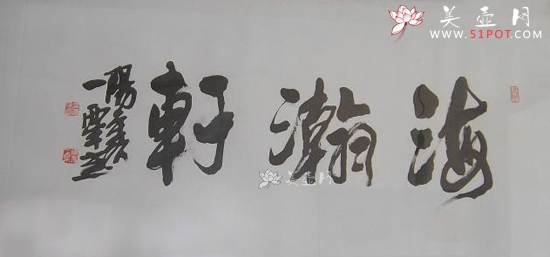 美壶网
WWW.51POT.COM
海瀚軒
陽羨
美壶网